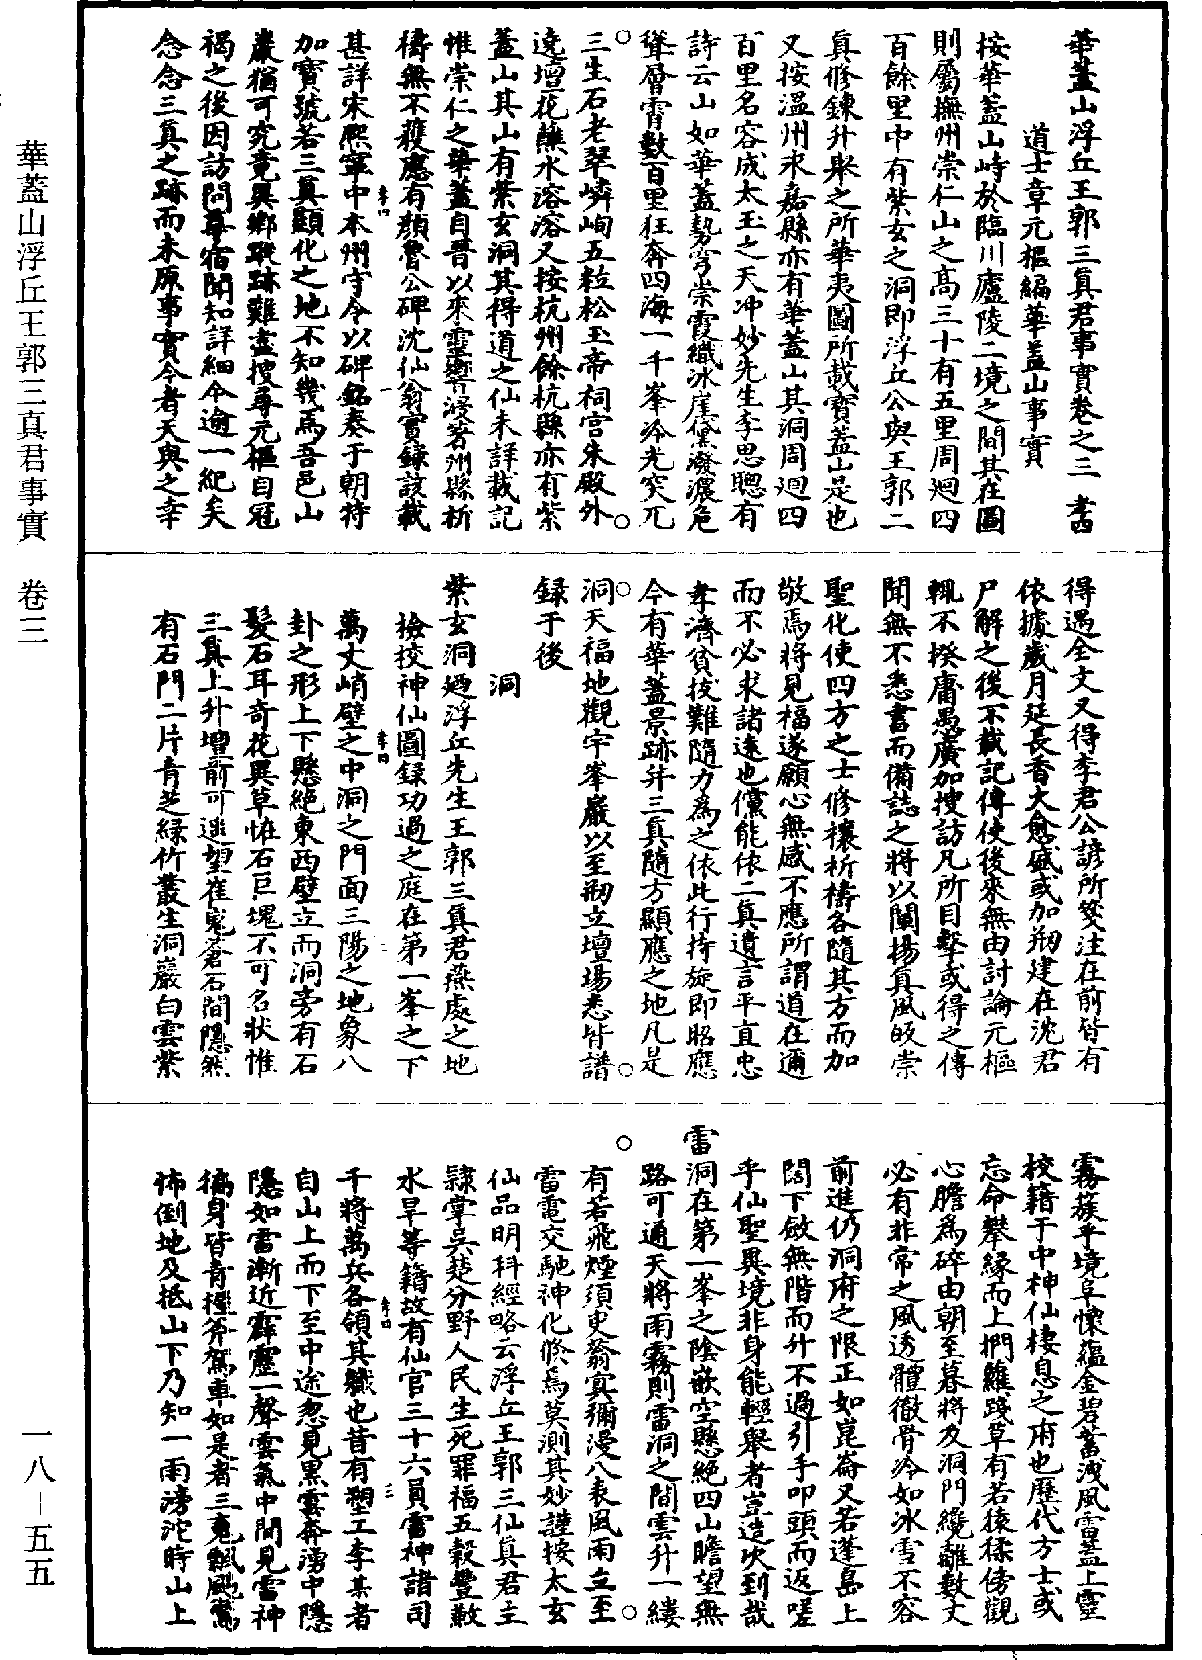 華蓋山浮丘王郭三真君事實卷之三 孝四
道士章元樞編華蓋山事實
按華蓋山峙於臨川廬陵二境之間其在圖
則屬撫州崇仁山之高三十有五里周廻四
百餘里中有紫玄之洞即浮丘公與王郭二
真修鍊升舉之所華夷圖所載寶蓋山是也
又按溫州永嘉縣亦有華蓋山其洞周廻四
百里名容成太玉之天冲妙先生李思聰有
詩云山如華蓋勢穹崇霞織冰崖黛潑濃危
聳層霄數百里狂奔四海一千峯泠光突兀
三生石老翠嶙峋五粒松玉帝祠宮朱殿外
遶壇花蘸水溶溶又按杭州餘杭縣亦有紫
蓋山其山有紫玄洞其得道之仙未詳載記
惟崇仁之華蓋自晉以來靈響浸著州縣祈
禱無不獲應有顏魯公碑沈仙翁實錄該載
甚詳宋熈寧中本州守令以碑銘奏于朝特
加寶號若三真顯化之地不知幾焉吾邑山
巖猶可究竟異鄉蹤跡難盡搜尋元樞自冠
褐之後因訪問尊宿聞知詳細今逾一紀矣
念念三真之跡而未原事實今者天與之幸
得遇全文又得李君公諺所箋注在前皆有
依據歲月延長香火愈盛或加剏建在沈君
尸解之後不載記傳使後來無由討論元樞
輒不揆庸愚廣加搜訪凡所目擊或得之傳
聞無不悉書而備誌之將以闡揚真風皈崇
聖化使四方之士修禳祈禱各隨其方而加
敬焉將見福遂願心無感不應所謂道在邇
而不必求諸遠也儻能依二真遺言平直忠
孝濟貧拔難隨力為之依此行持旋即昭應
今有華蓋景跡并三真隨方顯應之地凡是
洞天福地觀宇峯巖以至剏立壇場悉皆譜
録于後
洞
紫玄洞廼浮丘先生王郭三真君燕處之地
撿挍神仙圖録功過之庭在第一峯之下
萬丈峭壁之中洞之門面三陽之地象八
卦之形上下懸絕東西壁立而洞旁有石
髮石耳奇花異草恠石巨塊不可名狀惟
三真上升壇前可遥望崔嵬蒼石間隱然
有石門二片青芝綠竹叢生洞巖白雲紫
霧蔟乎境阜懷蘊金碧蓄洩風雷蓋上靈
校籍于中神仙棲息之府也歷代方士或
忘命攀緣而上捫蘿踐草有若猿猱傍觀
心膽為碎由朝至暮將及洞門纔離數丈
必有非常之風透體徹骨泠如冰雪不容
前進仍洞府之限正如崑崙又若蓬島上
闊下斂無階而升不過引手叩頭而返嗟
乎仙聖異境非身能輕舉者豈造次到哉
雷洞在第一峯之陰嵌空懸絕四山瞻望無
路可通天將雨霧則雷洞之間雲升一縷
有若飛煙須臾翁寘彌漫八表風雨立至
雷電交馳神化倏焉莫測其妙謹按太玄
仙品明科經略云浮丘王郭三仙真君主
隸掌吳楚分野人民生死罪福五穀豐歉
水旱等籍故有仙官三十六員雷神諸司
千將萬兵各領其職也昔有塑工李某者
自山上而下至中途忽見黑雲奔湧中隱
隱如雷漸近霹靂一聲雲氣中間見雷神
徧身皆青捶斧駕車如是者三寃飄颺驚
怖倒地及抵山下乃知一雨滂沱時山上
孝四
一
孝四
二
孝四
三
華蓋山浮丘王郭三真君事實 卷三
一八－五五